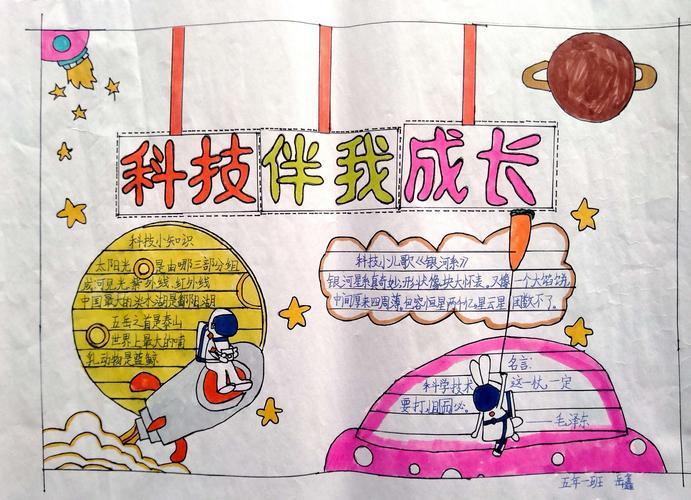 科技伴我成长
科技小知识
太阳光是由哪三部分组
成可见光紫外线,红外线
中国最大的淡水湖是鄱阳湖
五岳之首是泰山
世界上最大的哺
乳动物是蓝鲸
科技小儿歌《银河系》
银河星系真奇妙,形状像块大怀表。又像一个大馅饼,
中间厚来四周薄,包容恒星两千亿,星云星团数不了。
名言:
科学技术这一仗,一定
要打,且必
——毛泽东
五年一班 岳鑫